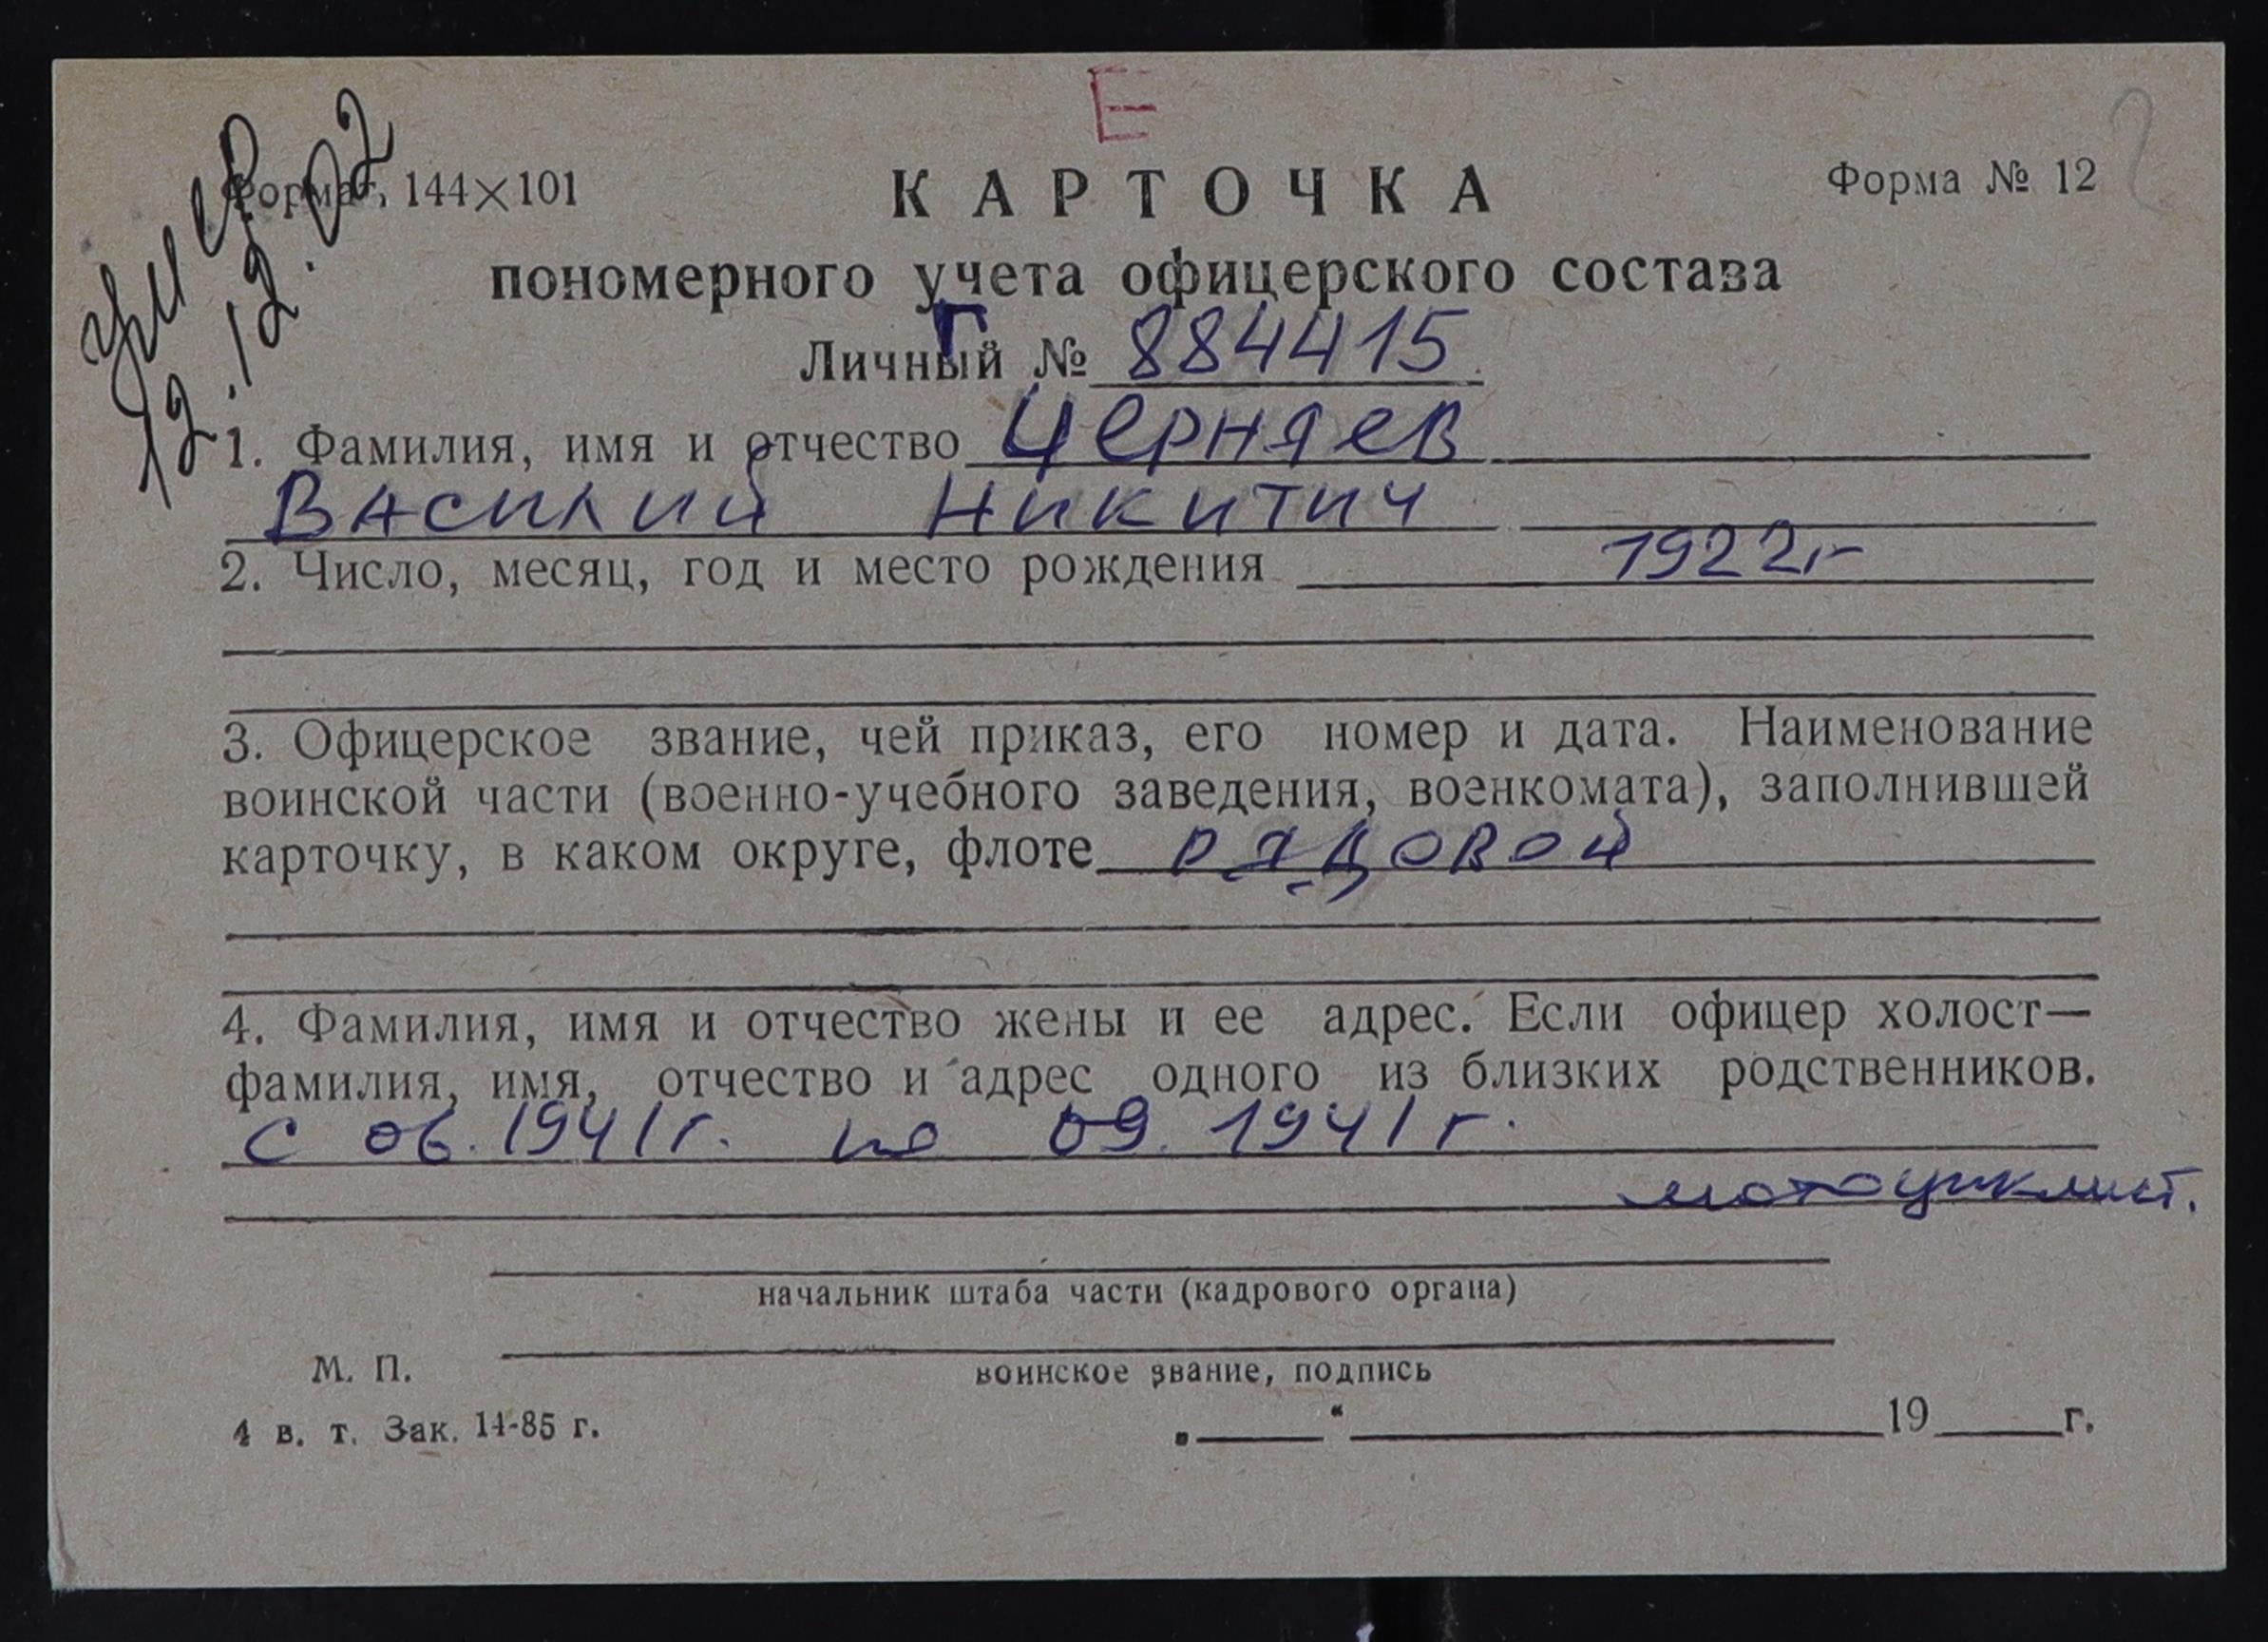 Е
Формат, 144×101
КАРТОЧКА
Форма № 12
12.12.02
пономерного учета офицерского состава
Г
Личный № 884415
1. Фамилия, имя и отчество Черняев
Василий Никитич
2. Число, месяц, год и место рождения 1922г
3. Офицерское звание, чей приказ, его номер и дата. Наименование
воинской части (военно-учебного заведения, военкомата), заполнившей
карточку, в каком округе, флоте рядовой
4. Фамилия, имя и отчество жены и ее адрес. Если офицер холост—
фамилия, имя, отчество и адрес одного из близких родственников.
с 06.1941г. по 09.1941г.
мотоциклист.
начальник штаба части (кадрового органа)
М. П.
воинское звание, подпись
4 в. т. Зак. 14-85 г.
„ “ 19 г.